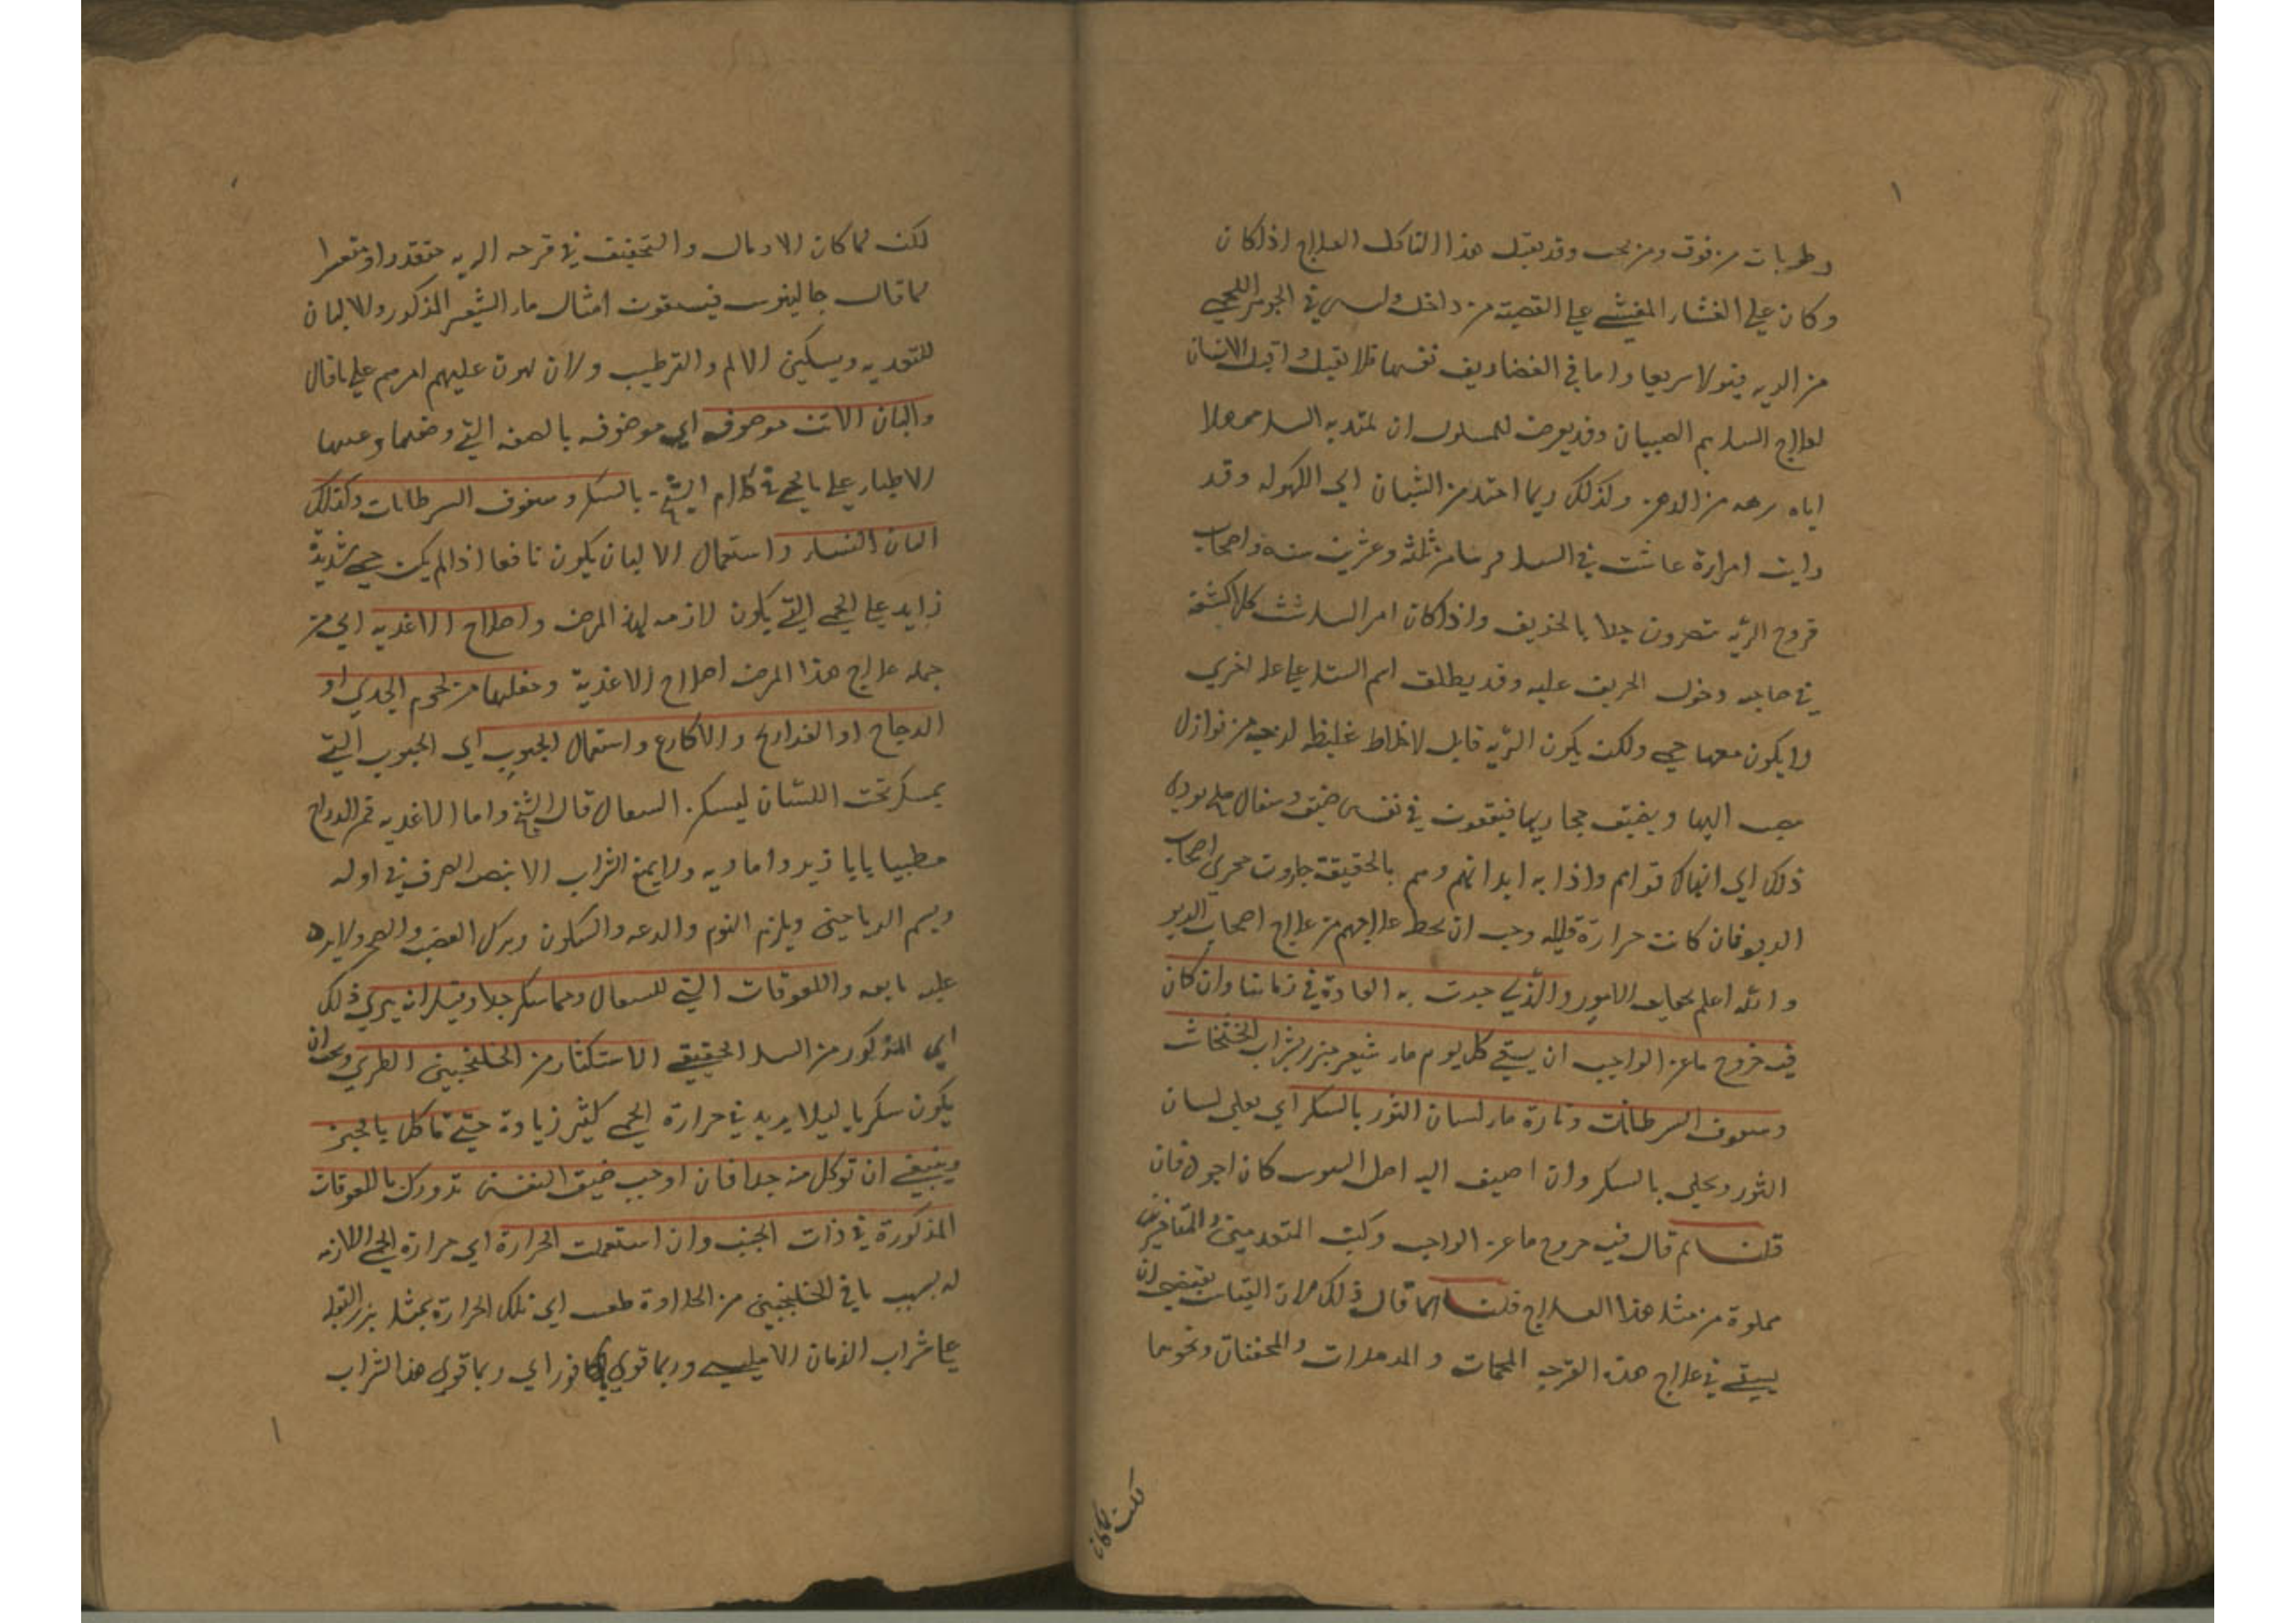 رطوبات من فوق ومن تحت وقد يقبل هذا التاكل العلاج اذا كان
وكان علي الغشاء المغشي علي القصبة من داخل وليس في الجوهر اللحمي
من الريه قبولا سريعا واما في الغضاريف نفسها فلا يقبل واقبل الاسنان
لعلاج السل هم الصبيان وقد يعرض للمسلول ان يمتد به السل ممهلا
اياه برهه من الدهر وكذلك ربما امتد من الشبان الي الكهوله وقد
رايت امراة عاشت في السل قريبا من ثلثة وعشرين سنه واصحاب
قروح الريه يتضررون جدا بالخريف واذا كان امر السل كشفه
في صاحبه دخول الخريف عليه وقد يطلق اسم السل علي علة اخري
لا يكون معها حمي ولكن يكون الريه قابله لاخلاط غليظه لزجه من نوازل
تصب اليها ويضيق مجاريها فيقعون في نفس ضيق وسعال ملح يودي
ذلك الي انهاك قواهم واذابه ابدانهم وهم بالحقيقة جارون مجري اصحاب
الربو فان كانت حرارة قليله وجب ان يخلط علاجهم من علاج اصحاب الربو
والله اعلم بحقايق الامور والذي جرت به العادة في زماننا وان كان
فيه خروج ما عن الواجب ان يسقي كل يوم ماء شعير مبزر بشراب الخشخاش
وسفوف السرطانات وتارة ماء لسان الثور بالسكر اي يغلي لسان
الثور ويحلي بالسكر وان اضيف اليه اصل السوس كان اجود فان
قلت لم قال فيه خروج ما عن الواجب وكتب المتقدمين والمتاخرين
مملوة من مثل هذا العلاج قلت انما قال ذلك لان القياس يقتضي ان
يسقي في علاج هذه القرحه الملحمات والمدملات والمجففات ونحوها
لكن لما كان
لكن لما كان الادمال والتجفيف في قرحه الريه متعذرا او متعسرا
لما قال جالينوس فيسقون امثال ماء الشعير المذكور والالبان
للتغذيه وتسكين الالم والترطيب ولان يهون عليهم امرهم علي ما قال
والبان الاتن موصوفه اي موصوفه بالصفه التي وضعها وعينها
الاطباء علي ما يجي في كلام الشيخ بالسكر وسفوف السرطانات وكذلك
البان النساء واستعمال الالبان يكون نافعا اذا لم يكن حمي شديدة
زايد علي الحمي التي يكون لازمه لهذا المرض واصلاح الاغذيه اي من
جمله علاج هذا المرض اصلاح الاغذية وجعلها من لحوم الجدي او
الدجاج او الفراريج والاكارع واستعمال الحبوب اي الحبوب التي
يمسك تحت اللسان ليسكن السعال قال الشيخ واما الاغذيه فمن الدراج
مطبيا بابا زير واماديه ولا يمنع الشراب الابيض الصرف في اوله
ويشم الرياحين ويلزم النوم والدعه والسكون وترك الغضب والضجر ولا يرد
عليه ما يغمه واللعوقات التي للسعال ومما يسكن جدا وقيل انه يبري ذلك
اي المذكور من السل الحقيقي الاستكثار من الخلنجبين الطري ويجب ان
يكون سكريا ليلا يزيد في حرارة الحمي كثير زيادة حتي تاكل بالخبز
وينبغي ان توكل منه جدا فان اوجب ضيق النفس تدورك باللعوقات
المذكورة في ذات الجنب وان اشتعلت الحرارة اي حرارة الحمي اللازمه
له بسبب ما في الخلنجبين من الحلاوة طفي اي تلك الحرارة بمثل بزر البقله
علي شراب الرمان الامليسي وربما قوي بالكافور اي وربما قوي هذا الشراب